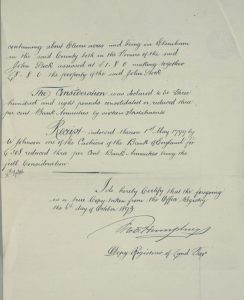 containing about Eleven acres and being in Elmsham
in the said County both in the Tenure of the said
John Peck assessed at £1. 8. 0 making together
8. 0 the property of the said John Peck
The Consideration was declared to be three
hundred and eight pounds consolidated or reduced three
per cent Bank Annuities by written Statements
Receipt indorsed thereon 1st May 1799 by
W Johnson one of the Cashiers of the Bank of England for
£308 reduced three per Cent Bank Annuities being the
full Consideration
I do hereby Certify that the foregoing
is a true Copy taken from the Office Registry
the 6th day of October 1893
Humphreys
Depy Registrar of Land Tax